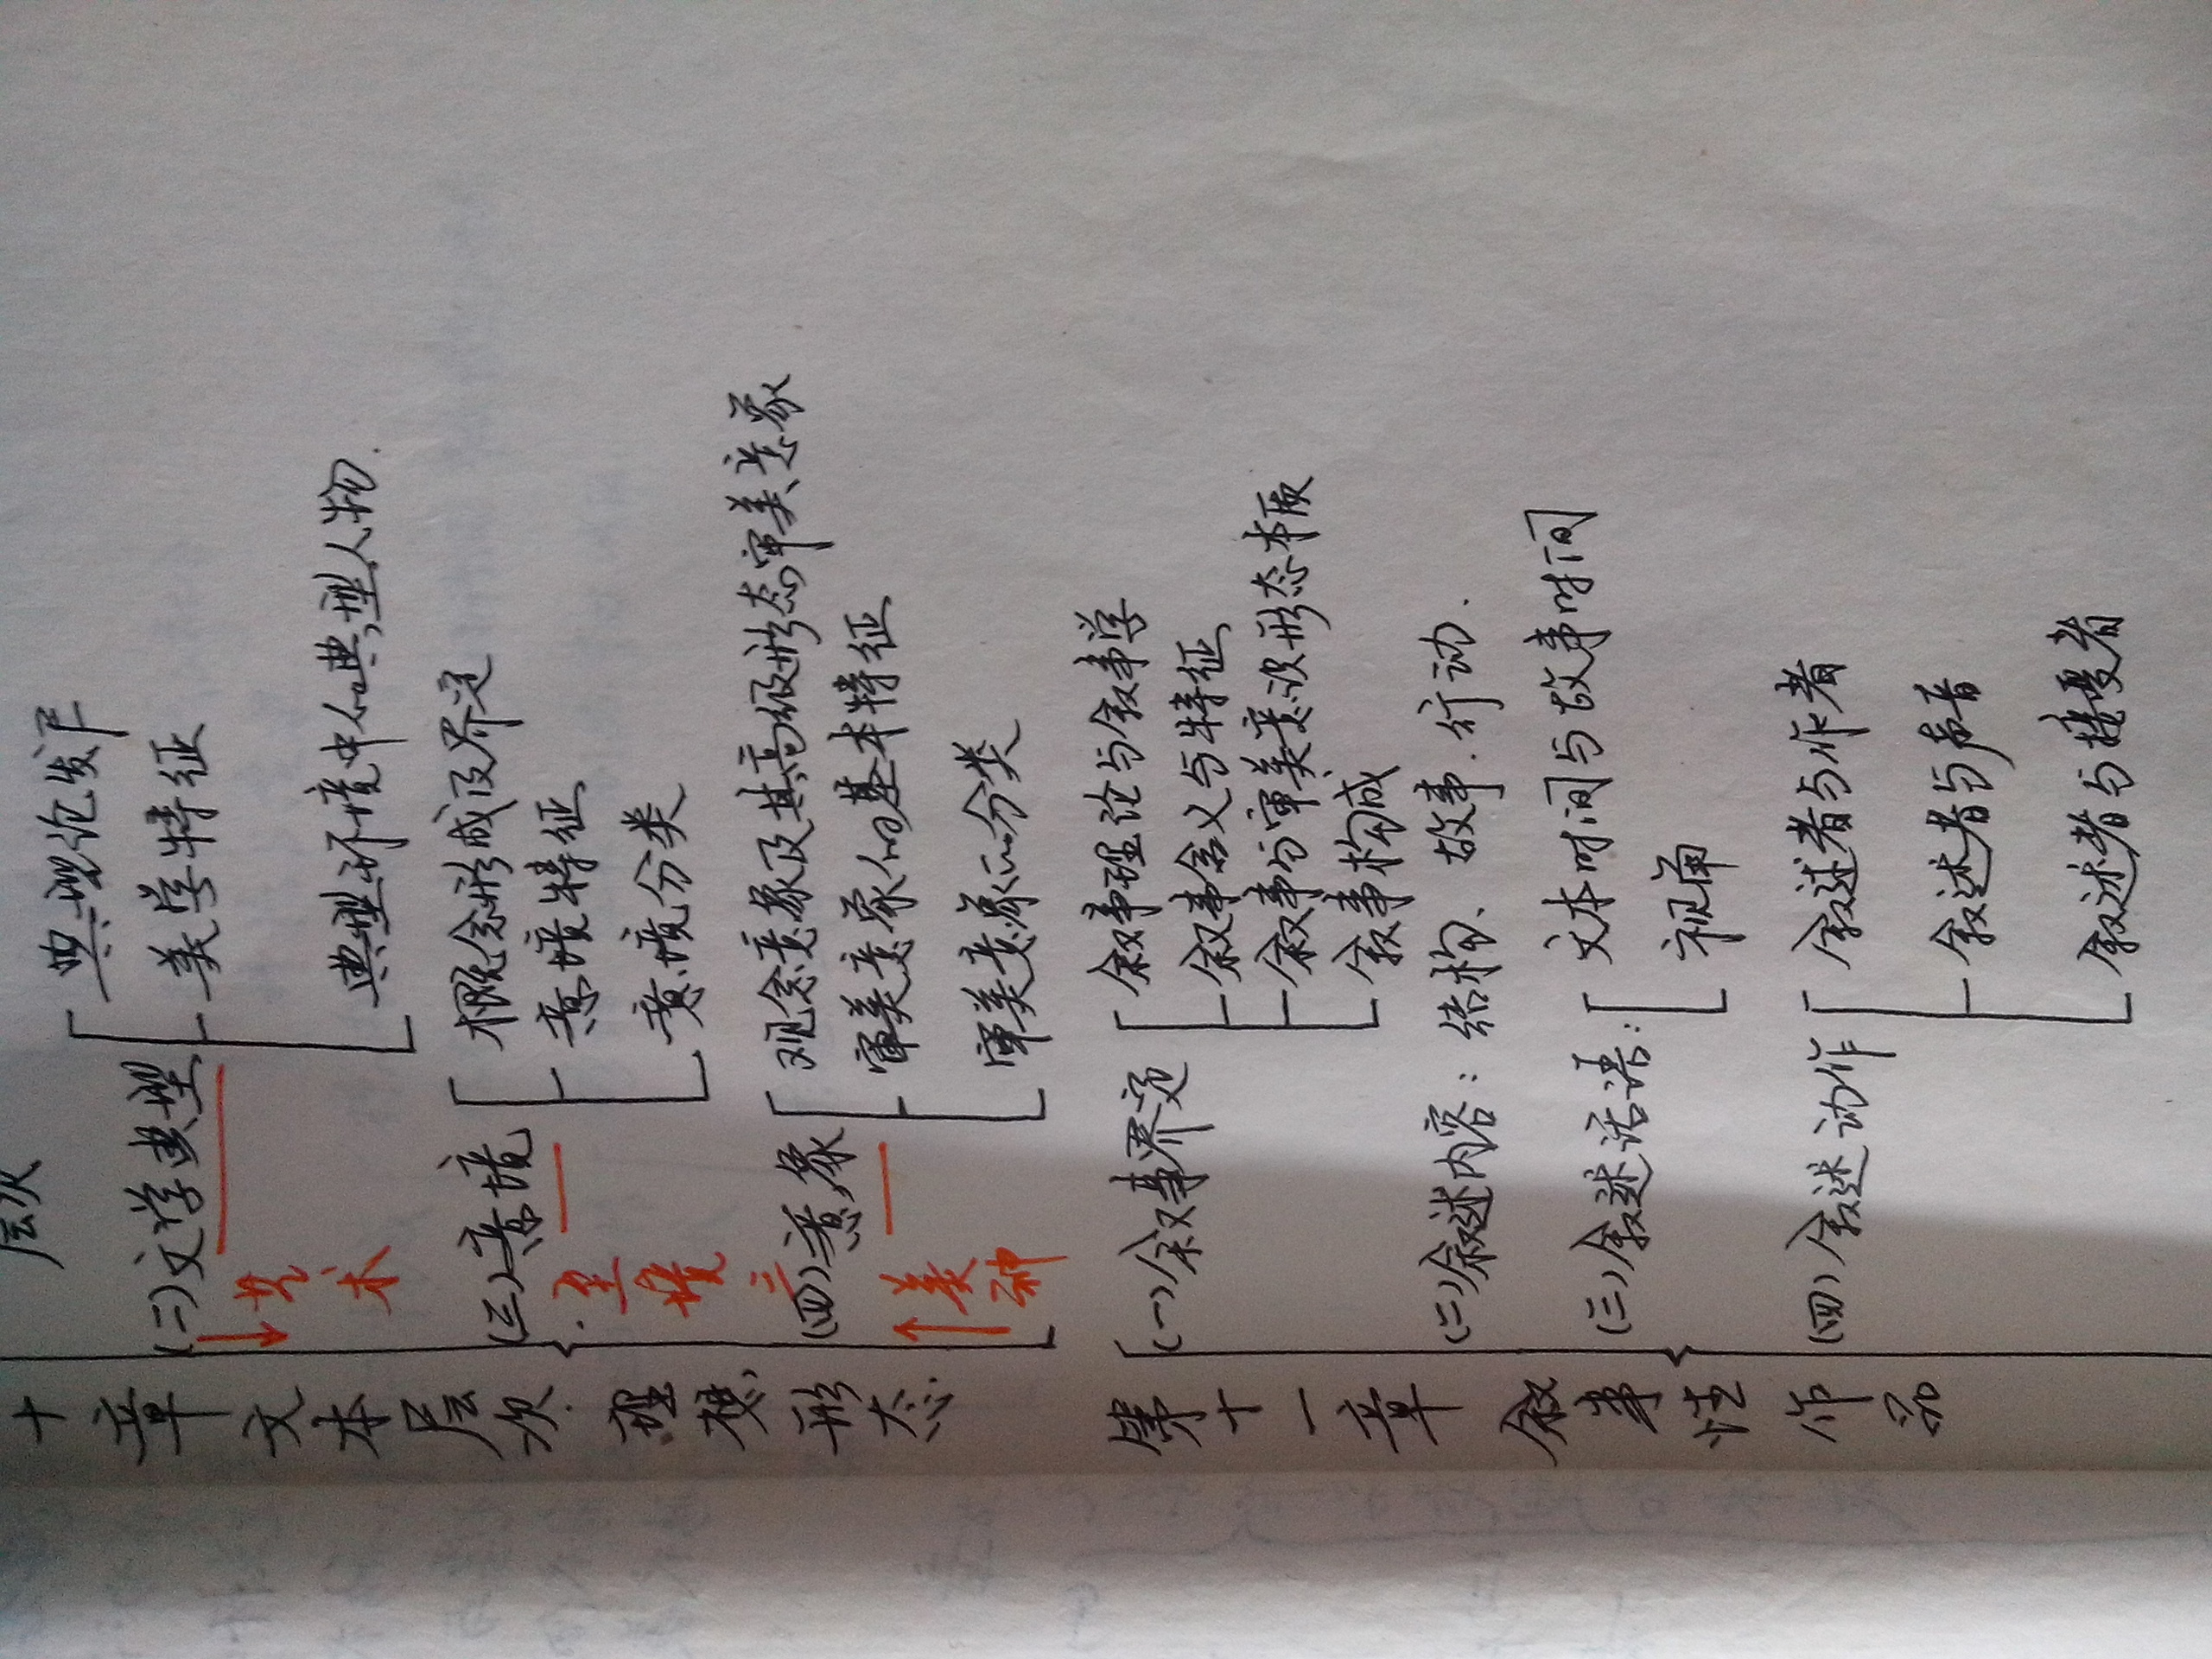 层次
十章 文本层次 理想形态
(二)文学典型
典型理论发
美学特征
典型环境中的典型人物.
(三)意境
概念形成及界定
意境特征
意境分类
(四)意象
观念意象及其高级形态审美意象
审美意象的基本特征
审美意象的分类
第十一章 叙事性作品
(一)叙事界定
叙事理论与叙事学
叙事含义与特征
叙事与审美意识形态本质
叙事构成
(二)叙述内容：结构、故事.行动.
(三)叙述话语：
文本时间与故事时间
视角
(四)叙述动作
叙述者与作者
叙述者与声音
叙述者与接受者